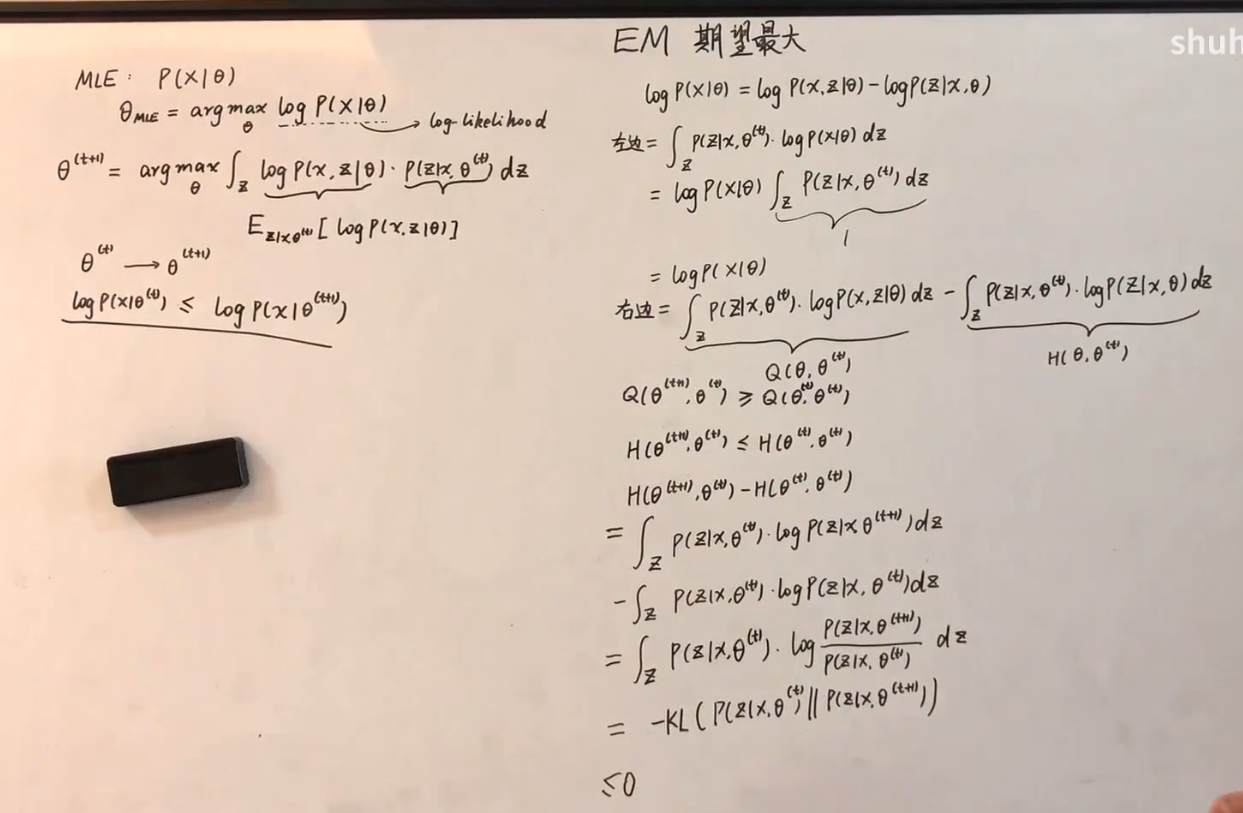 shuh
MLE: P(X|θ)
θ_MLE = argmax_θ log P(X|θ)
→ log-likelihood
θ^(t+1) = argmax_θ ∫_Z log P(x,z|θ) · P(z|x,θ^(t)) dz
E_z|x,θ^(t) [log P(x,z|θ)]
θ^(t) → θ^(t+1)
log P(x|θ^(t)) ≤ log P(x|θ^(t+1))
EM 期望最大
log P(x|θ) = log P(x,z|θ) - log P(z|x,θ)
左边 = ∫_Z P(z|x,θ^(t)) · log P(x|θ) dz
= log P(x|θ) ∫_Z P(z|x,θ^(t)) dz
1
= log P(x|θ)
右边 = ∫_Z P(z|x,θ^(t)) · log P(x,z|θ) dz - ∫_Z P(z|x,θ^(t)) · log P(z|x,θ) dz
Q(θ,θ^(t)) H(θ,θ^(t))
Q(θ^(t+1),θ^(t)) ≥ Q(θ^(t),θ^(t))
H(θ^(t+1),θ^(t)) ≤ H(θ^(t),θ^(t))
H(θ^(t+1),θ^(t)) - H(θ^(t),θ^(t))
= ∫_Z P(z|x,θ^(t)) · log P(z|x θ^(t+1)) dz
- ∫_Z P(z|x,θ^(t)) · log P(z|x,θ^(t)) dz
= ∫_Z P(z|x,θ^(t)) · log P(z|x,θ^(t+1)) / P(z|x,θ^(t)) dz
= -KL(P(z|x,θ^(t)) || P(z|x,θ^(t+1)))
≤0